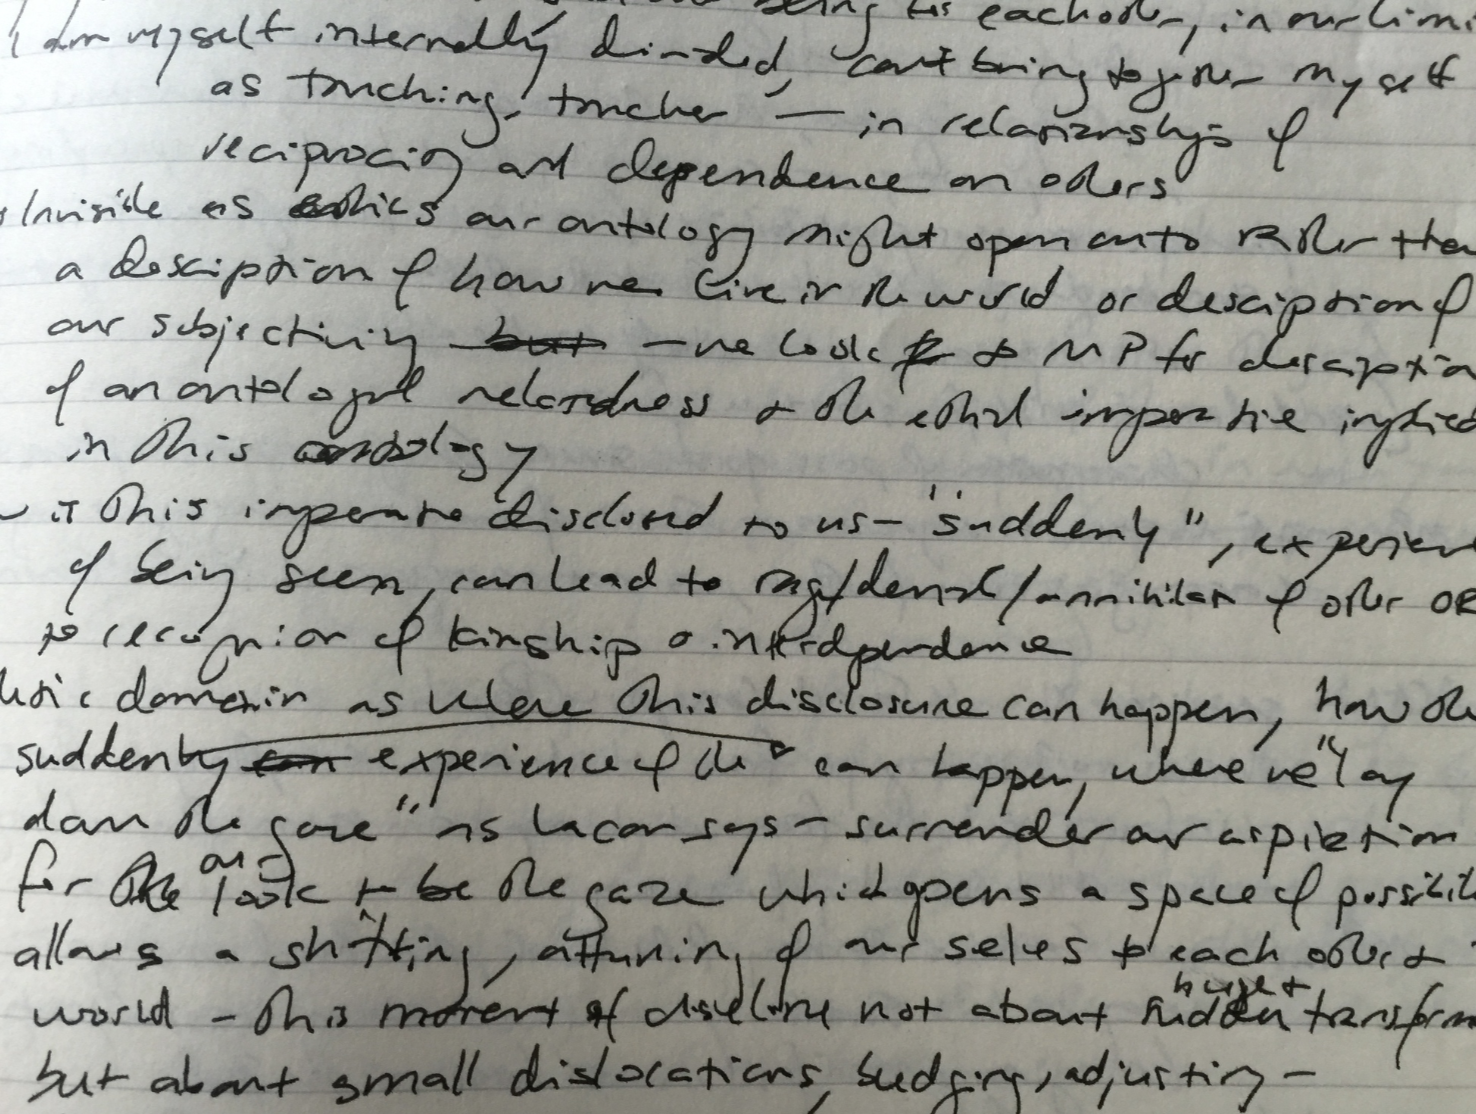 being for each other, in our
I am myself internally divided, can't bring together myself
as touching, toucher — in relationships of
reciprocity and dependence on others
Invisible as ethics our ontology might open onto rather than
a description of how we live in the world or description of
our subjectivity but — we look to MP for description
of an ontological relatedness & the ethical imperative implied
in this ontology
is this imperative disclosed to us — "suddenly", experience
of being seen, can lead to rage/denial/annihilation of other OR
to recognition of kinship & interdependence
domain as where this disclosure can happen, how the
suddenly can experience of the can happen, where we "lay
down the gaze" as Lacan says — surrender our aspiration
for the our look to be the gaze which opens a space of possibility
allows a shifting, attuning of our selves to each other &
world — this moment of disclosure not about sudden huge transform
but about small dislocations, budging, adjusting —